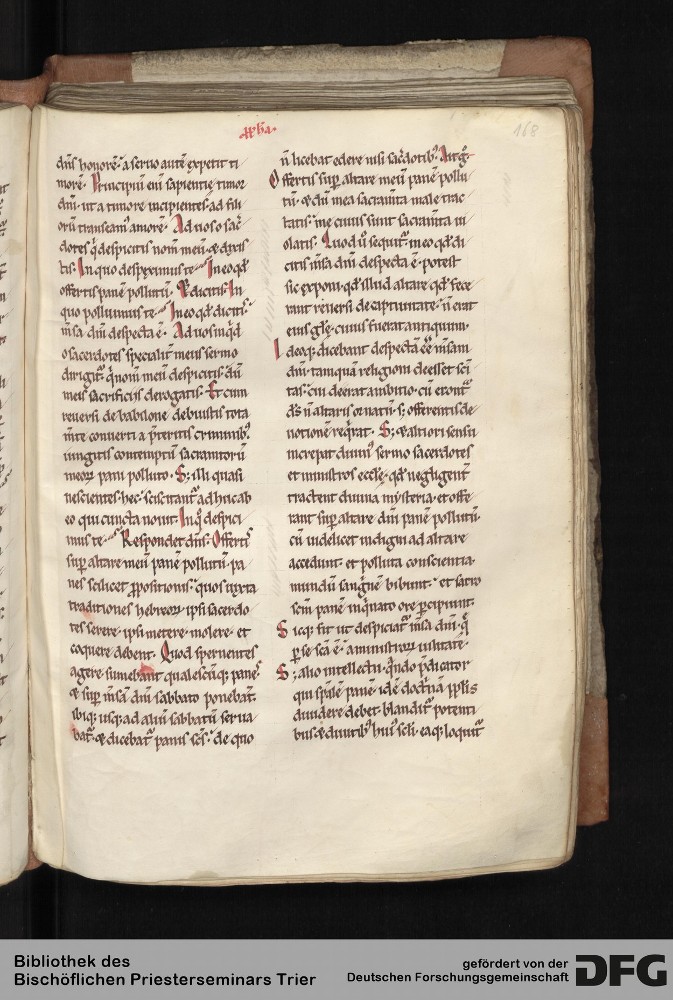 168
dn̄s honorē. a seruo autē expetit ti/
morē. Principiū enī sapientię timor
dn̄i. ut a timore incipientes. ad fili/
orū transeam᾽ amorē. Ad uos o sac̄/
dotes q̇ despicitis nom̄ meū. & dixis/
tis. In quo despeximus te. In eo qd̓
offertis panē pollutū. Et dicitis. In
quo polluimus te. In eo qd̓ dicitis.
m̄sa dn̄i despecta ē. Ad uos inq̇d
o sacerdotes specialit̓ meus sermo
dirigit᷑. q̇ nom̄ meū despicitis. dū
meis sacrificiis derogatis. Et cum
reuersi de babilone debuistis tota
m̄te conuerti a p̄teritis criminib᾽.
iungitis contemptū sacramtorū
meoꝝ pani polluto. S; illi quasi
nescientes hec. sciscitant᷑ adhuc ab
eo qui cuncta nouit. In q̊ despici/
mus te. Respondet dn̄s. Offertis
sup̄ altare meū panē pollutū. pa/
nes scilicet ꝓpositionis. quos iuxta
traditiones hebreoꝝ ipsi sacerdo
tes serere. ipsi metere. molere. et
coquere debent. Quod spernentes
agere sumebant qualescūq; panes.
& sup̄ m̄sā dn̄i sabbato ponebat᷑.
ibiq; usq; ad aliud sabbatū serua/
bat᷑. & dicebat᷑ panis sc̄s. de quo
n̄ licebat edere nisi sac̄dotib᾽. Aut q̊.
Offertis sup̄ altare meū panē pollu/
tū. & dū mea sacram̄ta male trac/
tatis. me cuius sunt sacram̄ta ui/
olatis. Quod ū sequit᷑. in eo qd̓ di/
citis m̄sa dn̄i despecta ē. potest
sic exponi. qd̓ illud altare qd̓ fece/
rant reuersi de captiuitate. n̄ erat
eius glę. cuius fuerat antiquum.
Ideoq; dicebant despectā eē m̄sam
dn̄i. tamquā religioni deesset sc̄i
tas. cui deerat ambitio. cū econt᷑
d̄s n̄ altaris ornatū. s; offerentis de/
uotionē reqrat. S; & altiori sensu
increpat diuin᾽ sermo sacerdotes
et ministros ecclę. qd̓ negligent᷑
tractent diuina mysteria. et offe/
rant sup̄ altare dn̄i panē pollutū.
cū uidelicet indigni ad altare
accedunt. et polluta conscientia.
mundū sanguinē bibunt. et sacro
scm̄ panē inq̇nato ore ꝑcipiunt.
Sicq; fit ut despiciat᷑ m̄sa dn̄i. q̄
ꝑ se sc̄a ē. a ministroꝝ uilitate.
S; alio intellectu. q̇ndo p̄dicator
qui spalem panē idē doctinā ppl̄is
diuidere debet. blandit᷑ potenti
bus & diuitib᾽ hui᾽ scl̄i. eaq; loquit᷑
Bibliothek des
Bischöflichen Priesterseminars Trier
gefördert von der
Deutschen Forschungsgemeinschaft
DFG